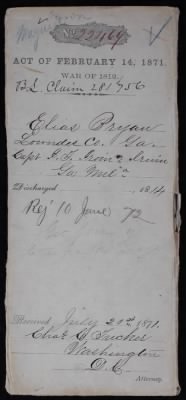 No. 22469
ACT OF FEBRUARY 14, 1871.
WAR OF 1812.
B.L. Claim 281756
Elias Bryan
Lowndes Co. Ga.
Capt
Ga Mila
Discharged 1814
Rej 10 June 72
Received July 20th, 1871.
Chas C. Tucker
Washington
D.C.
Attorney.